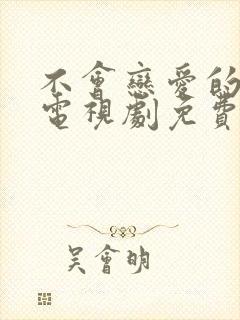 不會戀愛的
電視劇免費
吳會明